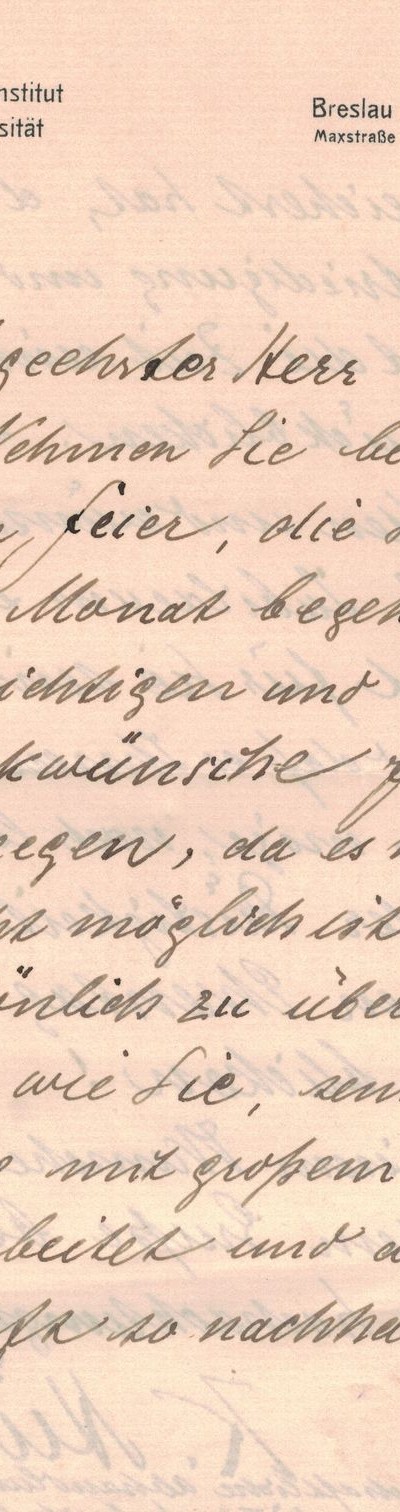 nstitut
Breslau
sität
Maxstraße
geehrter Herr
Nehmen Sie be
Feier, die
Monat begeh
ichtigen und
kwünsche f
egen, da es
ht möglich ist
önlich zu über
wie Sie, sein
mit großem
beitet und a
ft so nachha